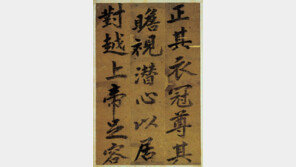 正其衣冠尊其
瞻視潜心以居
對越上帝足容